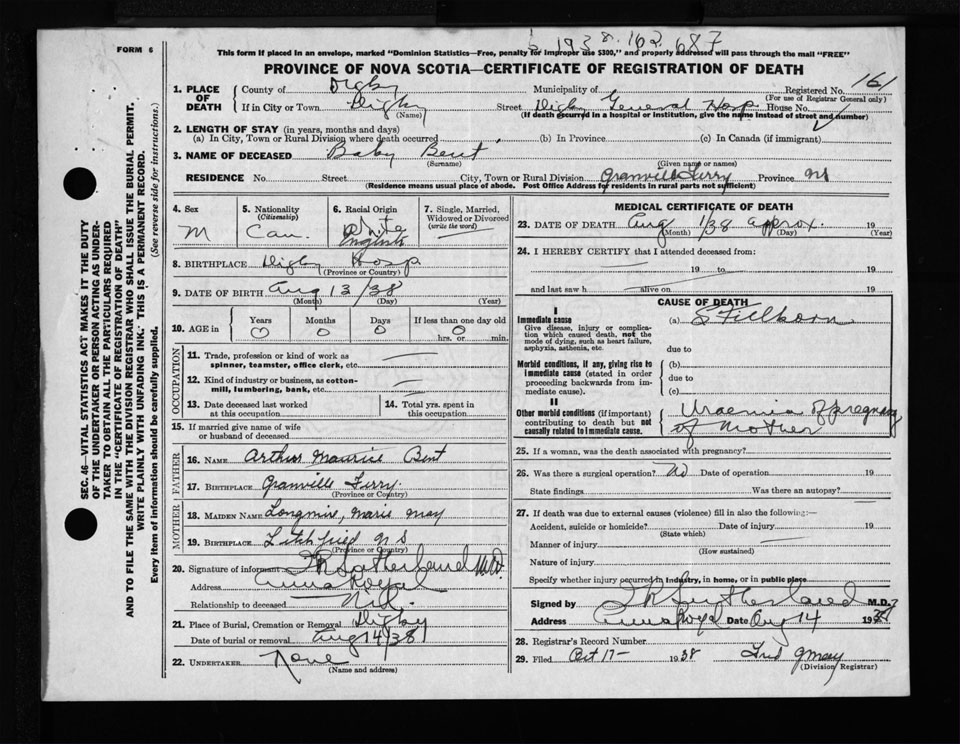 FORM 6
1938. 162 687
This form if placed in an envelope, marked "Dominion Statistics—Free, penalty for improper use $300," and properly addressed will pass through the mail "FREE"
PROVINCE OF NOVA SCOTIA—CERTIFICATE OF REGISTRATION OF DEATH
1. PLACE OF DEATH
County of Digby Municipality of Registered No. 161
(For use of Registrar General only)
If in City or Town Digby Street Digby General Hosp House No.
(Name) (If death occurred in a hospital or institution, give the name instead of street and number)
2. LENGTH OF STAY (in years, months and days)
(a) In City, Town or Rural Division where death occurred (b) In Province (c) In Canada (if immigrant)
3. NAME OF DECEASED Baby Bent
(Surname) (Given name or names)
RESIDENCE No. Street City, Town or Rural Division Granville Ferry Province NS
(Residence means usual place of abode. Post Office Address for residents in rural parts not sufficient)
4. Sex
M
5. Nationality
(Citizenship)
Can.
6. Racial Origin
White
English
7. Single, Married,
Widowed or Divorced
(write the word)
8. BIRTHPLACE Digby Hosp
(Province or Country)
9. DATE OF BIRTH Aug 13/38
(Month) (Day) (Year)
10. AGE in
Years
0
Months
0
Days
0
If less than one day old
0
hrs. or min.
OCCUPATION
11. Trade, profession or kind of work as
spinner, teamster, office clerk, etc.
12. Kind of industry or business, as cotton-
mill, lumbering, bank, etc.
13. Date deceased last worked
at this occupation
14. Total yrs. spent in
this occupation
15. If married give name of wife
or husband of deceased
FATHER
16. NAME Arthur Maurice Bent
17. BIRTHPLACE Granville Ferry
(Province or Country)
MOTHER
18. MAIDEN NAME Longmire, Marie May
19. BIRTHPLACE Litchfield NS
(Province or Country)
20. Signature of informant Sutherland MD
Address Anna Royal
Relationship to deceased Nil.
21. Place of Burial, Cremation or Removal Digby
Date of burial or removal Aug 14/38
22. UNDERTAKER None
(Name and address)
MEDICAL CERTIFICATE OF DEATH
23. DATE OF DEATH Aug 1/38 approx.
(Month) (Day) (Year)
24. I HEREBY CERTIFY that I attended deceased from:
19 to 19
and last saw h alive on 19
CAUSE OF DEATH
I
Immediate cause
Give disease, injury or complica-
tion which caused death, not the
mode of dying, such as heart failure,
asphyxia, asthenia, etc.
(a) Stillborn
due to
Morbid conditions, if any, giving rise to
immediate cause (stated in order
proceeding backwards from im-
mediate cause).
(b)
due to
(c)
II
Other morbid conditions (if important)
contributing to death but not
causally related to immediate cause.
Uraemia of pregnancy
of Mother
25. If a woman, was the death associated with pregnancy?
26. Was there a surgical operation? No Date of operation 19
State findings Was there an autopsy?
27. If death was due to external causes (violence) fill in also the following:—
Accident, suicide or homicide? Date of injury 19
(State which)
Manner of injury
(How sustained)
Nature of injury
Specify whether injury occurred in industry, in home, or in public place
Signed by Sutherland M.D.
Address Anna Royal Date Aug 14 1938
28. Registrar's Record Number
29. Filed Oct 17— 1938
(Division Registrar)
SEC. 46—VITAL STATISTICS ACT MAKES IT THE DUTY
OF THE UNDERTAKER OR PERSON ACTING AS UNDER-
TAKER TO OBTAIN ALL THE PARTICULARS REQUIRED
IN THE "CERTIFICATE OF REGISTRATION OF DEATH"
AND TO FILE THE SAME WITH THE DIVISION REGISTRAR WHO SHALL ISSUE THE BURIAL PERMIT.
WRITE PLAINLY WITH UNFADING INK. THIS IS A PERMANENT RECORD.
Every item of information should be carefully supplied. (See reverse side for instructions.)